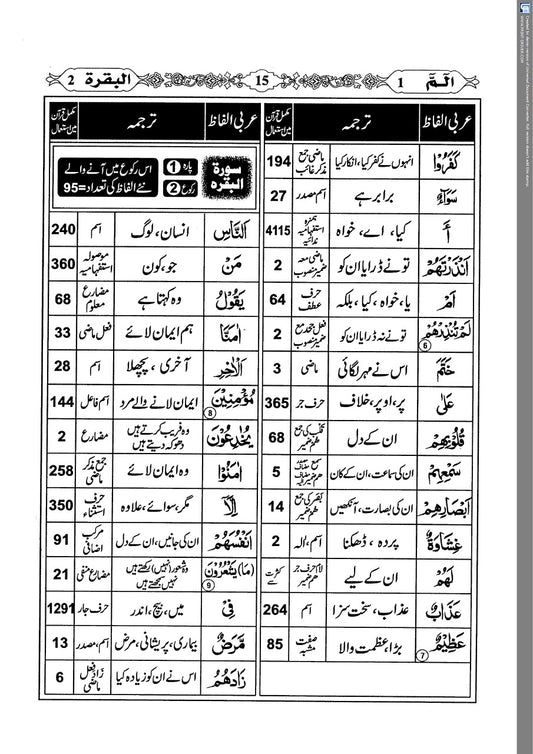 الٓمّٓ 1
15
البقرة 2
عربی الفاظ ترجمہ مکمل قرآن میں استعمال
كَفَرُوْا انہوں نے کفر کیا، انکار کیا ماضی جمع مذکر غائب 194
سَوَآءٌ برابر ہے اسم، مصدر 27
أَ کیا، اے، خواہ ہمزہ استفہامیہ ندائیہ 4115
ءَاَنْذَرْتَهُمْ تو نے ڈرایا ان کو ماضی معہ ضمیر منصوب 2
اَمْ یا، خواہ، کیا، بلکہ حرف عطف 64
لَمْ تُنْذِرْهُمْ 6 تو نے نہ ڈرایا ان کو فعل جحد مع ضمیر منصوب 2
خَتَمَ اس نے مہر لگائی ماضی 3
عَلٰى پر، اوپر، خلاف حرف جر 365
قُلُوْبِهِمْ ان کے دل قلب کی جمع ھم ضمیر 68
سَمْعِهِمْ ان کی سماعت، ان کے کان 5
اَبْصَارِهِمْ ان کی بصارت، آنکھیں بصر کی جمع ھم ضمیر 14
غِشَاوَةٌ پردہ، ڈھکنا اسم، آلہ 2
لَهُمْ ان کے لیے لام حرف جر ھم ضمیر کثرت سے
عَذَابٌ عذاب، سخت سزا اسم 264
عَظِيْمٌ 7 بڑا، عظمت والا صفت مشبہ 85
عربی الفاظ ترجمہ مکمل قرآن میں استعمال
سورة البقرہ
پارہ 1
رکوع 2
اس رکوع میں آنے والے
نئے الفاظ کی تعداد=95
النَّاسِ انسان، لوگ اسم 240
مَنْ جو، کون موصولہ استفہامیہ 360
يَقُوْلُ وہ کہتا ہے مضارع معلوم 68
اٰمَنَّا ہم ایمان لائے فعل ماضی 33
الْاٰخِرِ آخری، پچھلا اسم 28
مُؤْمِنِيْنَ 8 ایمان لانے والے مرد اسم فاعل 144
يُخٰدِعُوْنَ وہ فریب کرتے ہیں دھوکہ دیتے ہیں مضارع 2
اٰمَنُوْا وہ ایمان لائے جمع مذکر ماضی 258
اِلَّآ مگر، سوائے، علاوہ حرف استثناء 350
اَنْفُسَهُمْ ان کی جانیں، ان کے دل مرکب اضافی 91
(مَا) يَشْعُرُوْنَ 9 وہ شعور (نہیں) رکھتے ہیں نہیں سمجھتے ہیں مضارع منفی 21
فِىْ میں، بیچ، اندر حرف جار 1291
مَّرَضٌ بیماری، پریشانی، مرض اسم، مصدر 13
زَادَهُمْ اس نے ان کو زیادہ کیا زاد فعل ماضی 6